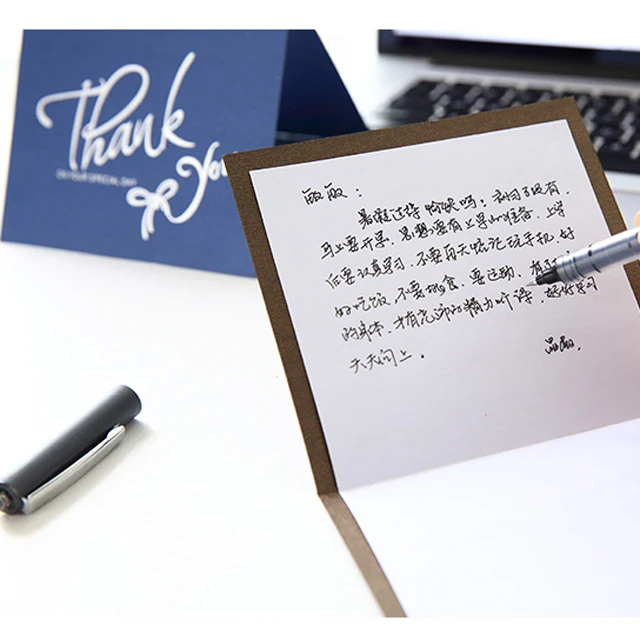 Thank
You
ON YOUR SPECIAL DAY
敏敏：
暑假过得愉快吗？衣向了没有，
马上要开学，思想要有上学的准备，上学
后要认真学习，不要有天晚玩手机，好
好吃饭，不要挑食，要运动，有
的身体，才有充沛的精力听课，好好学习
天天向上。